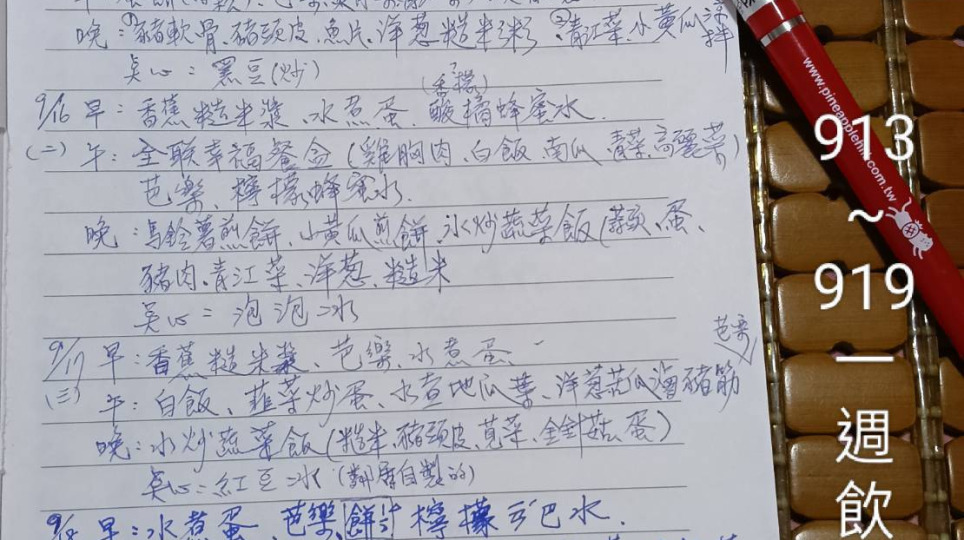 晚:豬軟骨、豬頭皮、魚片、洋蔥糙米粥、青江菜、小黃瓜涼拌
點心:黑豆(炒)
(香檬)
9/16 早:香蕉糙米漿、水煮蛋、酸橘蜂蜜水.
(二) 午:全联幸福餐盒(雞胸肉、白飯、南瓜、青菜、高麗菜)
芭樂、檸檬蜂蜜水.
晚:馬鈴薯煎餅、小黃瓜煎餅、水炒蔬菜飯(蛋、
豬肉、青江菜、洋蔥、糙米
點心:泡泡冰
9/17 早:香蕉糙米漿、芭樂、水煮蛋、
芭樂
(三) 午:白飯、韮菜炒蛋、水煮地瓜葉、洋蔥苦瓜滷豬筋
晚:水炒蔬菜飯(糙米、豬頭皮、莧菜、金針菇、蛋)
點心:紅豆冰(鄰居自製的)
9/18 早:水煮蛋、芭樂、餅、檸檬水.
www.pineapplehill.com.tw
913
~
919
一
週
飲